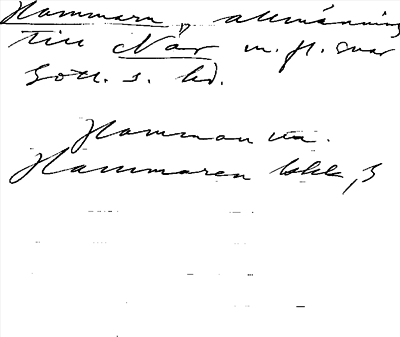 Hammarn, allmänning
till När m. fl. snar
Gotl. s. hd.
Hammarn
Hammaren